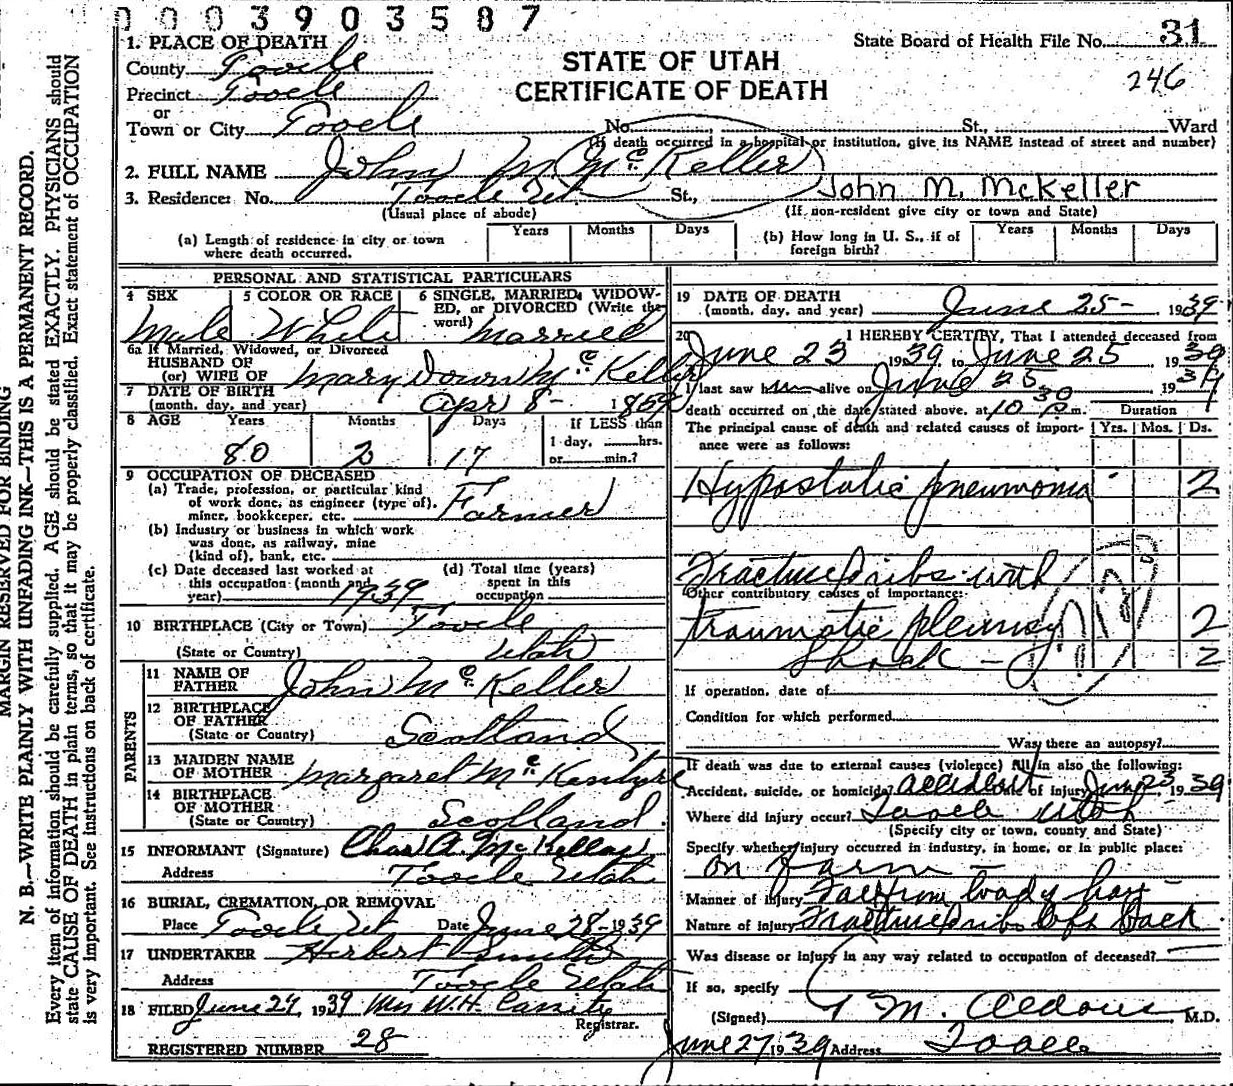 0003903587
1. PLACE OF DEATH
County Tooele
Precinct Tooele
or
Town or City Tooele No. St., Ward
(If death occurred in a hospital or institution, give its NAME instead of street and number)
STATE OF UTAH
CERTIFICATE OF DEATH
State Board of Health File No. 31
246
2. FULL NAME John M. McKeller
3. Residence: No. Tooele Ut St., John M. McKeller
(Usual place of abode) (If non-resident give city or town and State)
(a) Length of residence in city or town where death occurred. Years Months Days
(b) How long in U. S., if of foreign birth? Years Months Days
PERSONAL AND STATISTICAL PARTICULARS
4 SEX 5 COLOR OR RACE 6 SINGLE, MARRIED, WIDOWED, or DIVORCED (Write the word)
Male White Married
6a If Married, Widowed, or Divorced
HUSBAND OF
(or) WIFE OF Mary McKeller
7 DATE OF BIRTH
(month, day, and year) Apr 8- 1859
8 AGE Years Months Days If LESS than
1 day, hrs.
or min.?
80 2 17
9 OCCUPATION OF DECEASED
(a) Trade, profession, or particular kind
of work done, as engineer (type of),
miner, bookkeeper, etc. Farmer
(b) Industry or business in which work
was done, as railway, mine
(kind of), bank, etc.
(c) Date deceased last worked at
this occupation (month and
year) 1939
(d) Total time (years)
spent in this
occupation
10 BIRTHPLACE (City or Town) Tooele
(State or Country) Utah
PARENTS
11 NAME OF
FATHER John McKeller
12 BIRTHPLACE
OF FATHER
(State or Country) Scotland
13 MAIDEN NAME
OF MOTHER Margaret McKentyre
14 BIRTHPLACE
OF MOTHER
(State or Country) Scotland.
15 INFORMANT (Signature) Chas A. McKellar
Address Tooele Utah
16 BURIAL, CREMATION, OR REMOVAL
Place Tooele Ut Date June 28- 1939
17 UNDERTAKER Herbert Smith
Address Tooele Utah
18 FILED June 27, 1939 Mrs W.H. Cassity
Registrar.
REGISTERED NUMBER 28
19 DATE OF DEATH
(month, day, and year) June 25- 1939
20 I HEREBY CERTIFY, That I attended deceased from
June 23 1939, to June 25 1939
I last saw him alive on June 25 1939
death occurred on the date stated above, at 10 30 P.m. Duration
The principal cause of death and related causes of importance were as follows: Yrs. Mos. Ds.
Hypostatic pneumonia 2
Fractured ribs with
Other contributory causes of importance:
traumatic pleurisy 2
Shock - 2
If operation, date of
Condition for which performed
Was there an autopsy?
If death was due to external causes (violence) fill in also the following:
Accident, suicide, or homicide? Accident Date of injury June 23, 1939
Where did injury occur? Tooele Utah
(Specify city or town, county and State)
Specify whether injury occurred in industry, in home, or in public place:
on farm
Manner of injury Fall from load hay -
Nature of injury Fractured ribs left back
Was disease or injury in any way related to occupation of deceased?
If so, specify
(Signed) T M. Aldous, M.D.
June 27 1939 Address Tooele
MARGIN RESERVED FOR BINDING
N. B.—WRITE PLAINLY WITH UNFADING INK—THIS IS A PERMANENT RECORD.
Every item of information should be carefully supplied. AGE should be stated EXACTLY. PHYSICIANS should
state CAUSE OF DEATH in plain terms, so that it may be properly classified. Exact statement of OCCUPATION
is very important. See instructions on back of certificate.